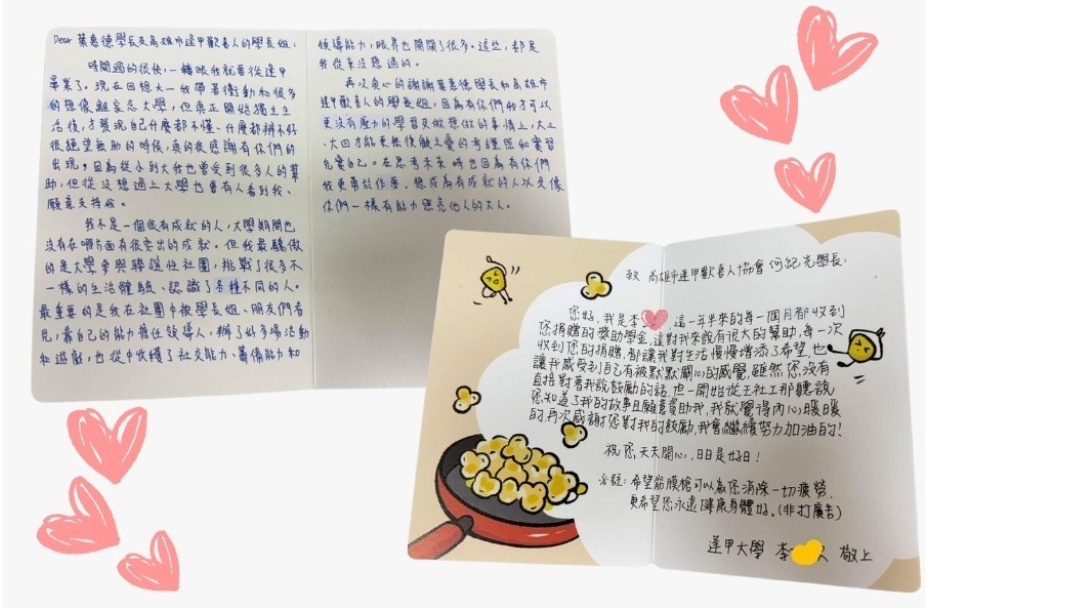 Dear 葉惠德學長及高雄市逢甲歡喜人的學長姐,
時間過的很快,一轉眼我就要從逢甲
畢業了。現在回想大一我帶著衝動和很多
的想像離家念大學,但真正開始獨立生
活後,才發現自己什麼都不懂、什麼都辦不好
很絕望無助的時候,真的很感謝有你們的
出現,因為從小到大我也曾受到很多人的幫
助,但從沒想過上大學也會有人看到我、
願意支持我。
我不是一個很有成就的人,大學期間也
沒有在哪方面有很突出的成就。但我最驕傲
的是大學參與聯誼性社團,挑戰了很多不
一樣的生活體驗、認識了各種不同的人。
最重要的是我在社團中被學長姐、朋友們看
見,靠自己的能力擔任領導人,辦了好多場活動
和遊戲,也從中收穫了社交能力、籌備能力和
領導能力,眼界也開闊了很多。這些,都是
我從來沒想過的。
再次真心的謝謝葉惠德學長和高雄市
逢甲歡喜人的學長姐,因為有你們我才可以
更沒有壓力的學習及做想做的事情上,大三
、大四才能更無後顧之憂的考證照和實習
充實自己。在思考未來時也因為有你們
我更勇於作夢,想成為有成就的人以及像
你們一樣有能力照亮他人的大人。
致 高雄市逢甲歡喜人協會 何紀光學長:
您好,我是李,這一年半來的每一個月都收到
您捐贈的獎助學金,這對我來說有很大的幫助,每一次
收到您的捐贈,都讓我對生活慢慢增添了希望,也
讓我感受到自己有被默默關心的感覺,雖然您沒有
直接對著我說鼓勵的話,但一開始從王社工那聽說
您知道了我的故事且願意資助我,我就覺得內心暖暖
的,再次感謝您對我的鼓勵,我會繼續努力加油的!
祝您 天天開心,日日是好日!
必註:希望筋膜槍可以為您消除一切疲勞,
更希望您永遠健康身體好。(非打廣告)
逢甲大學 李 敬上